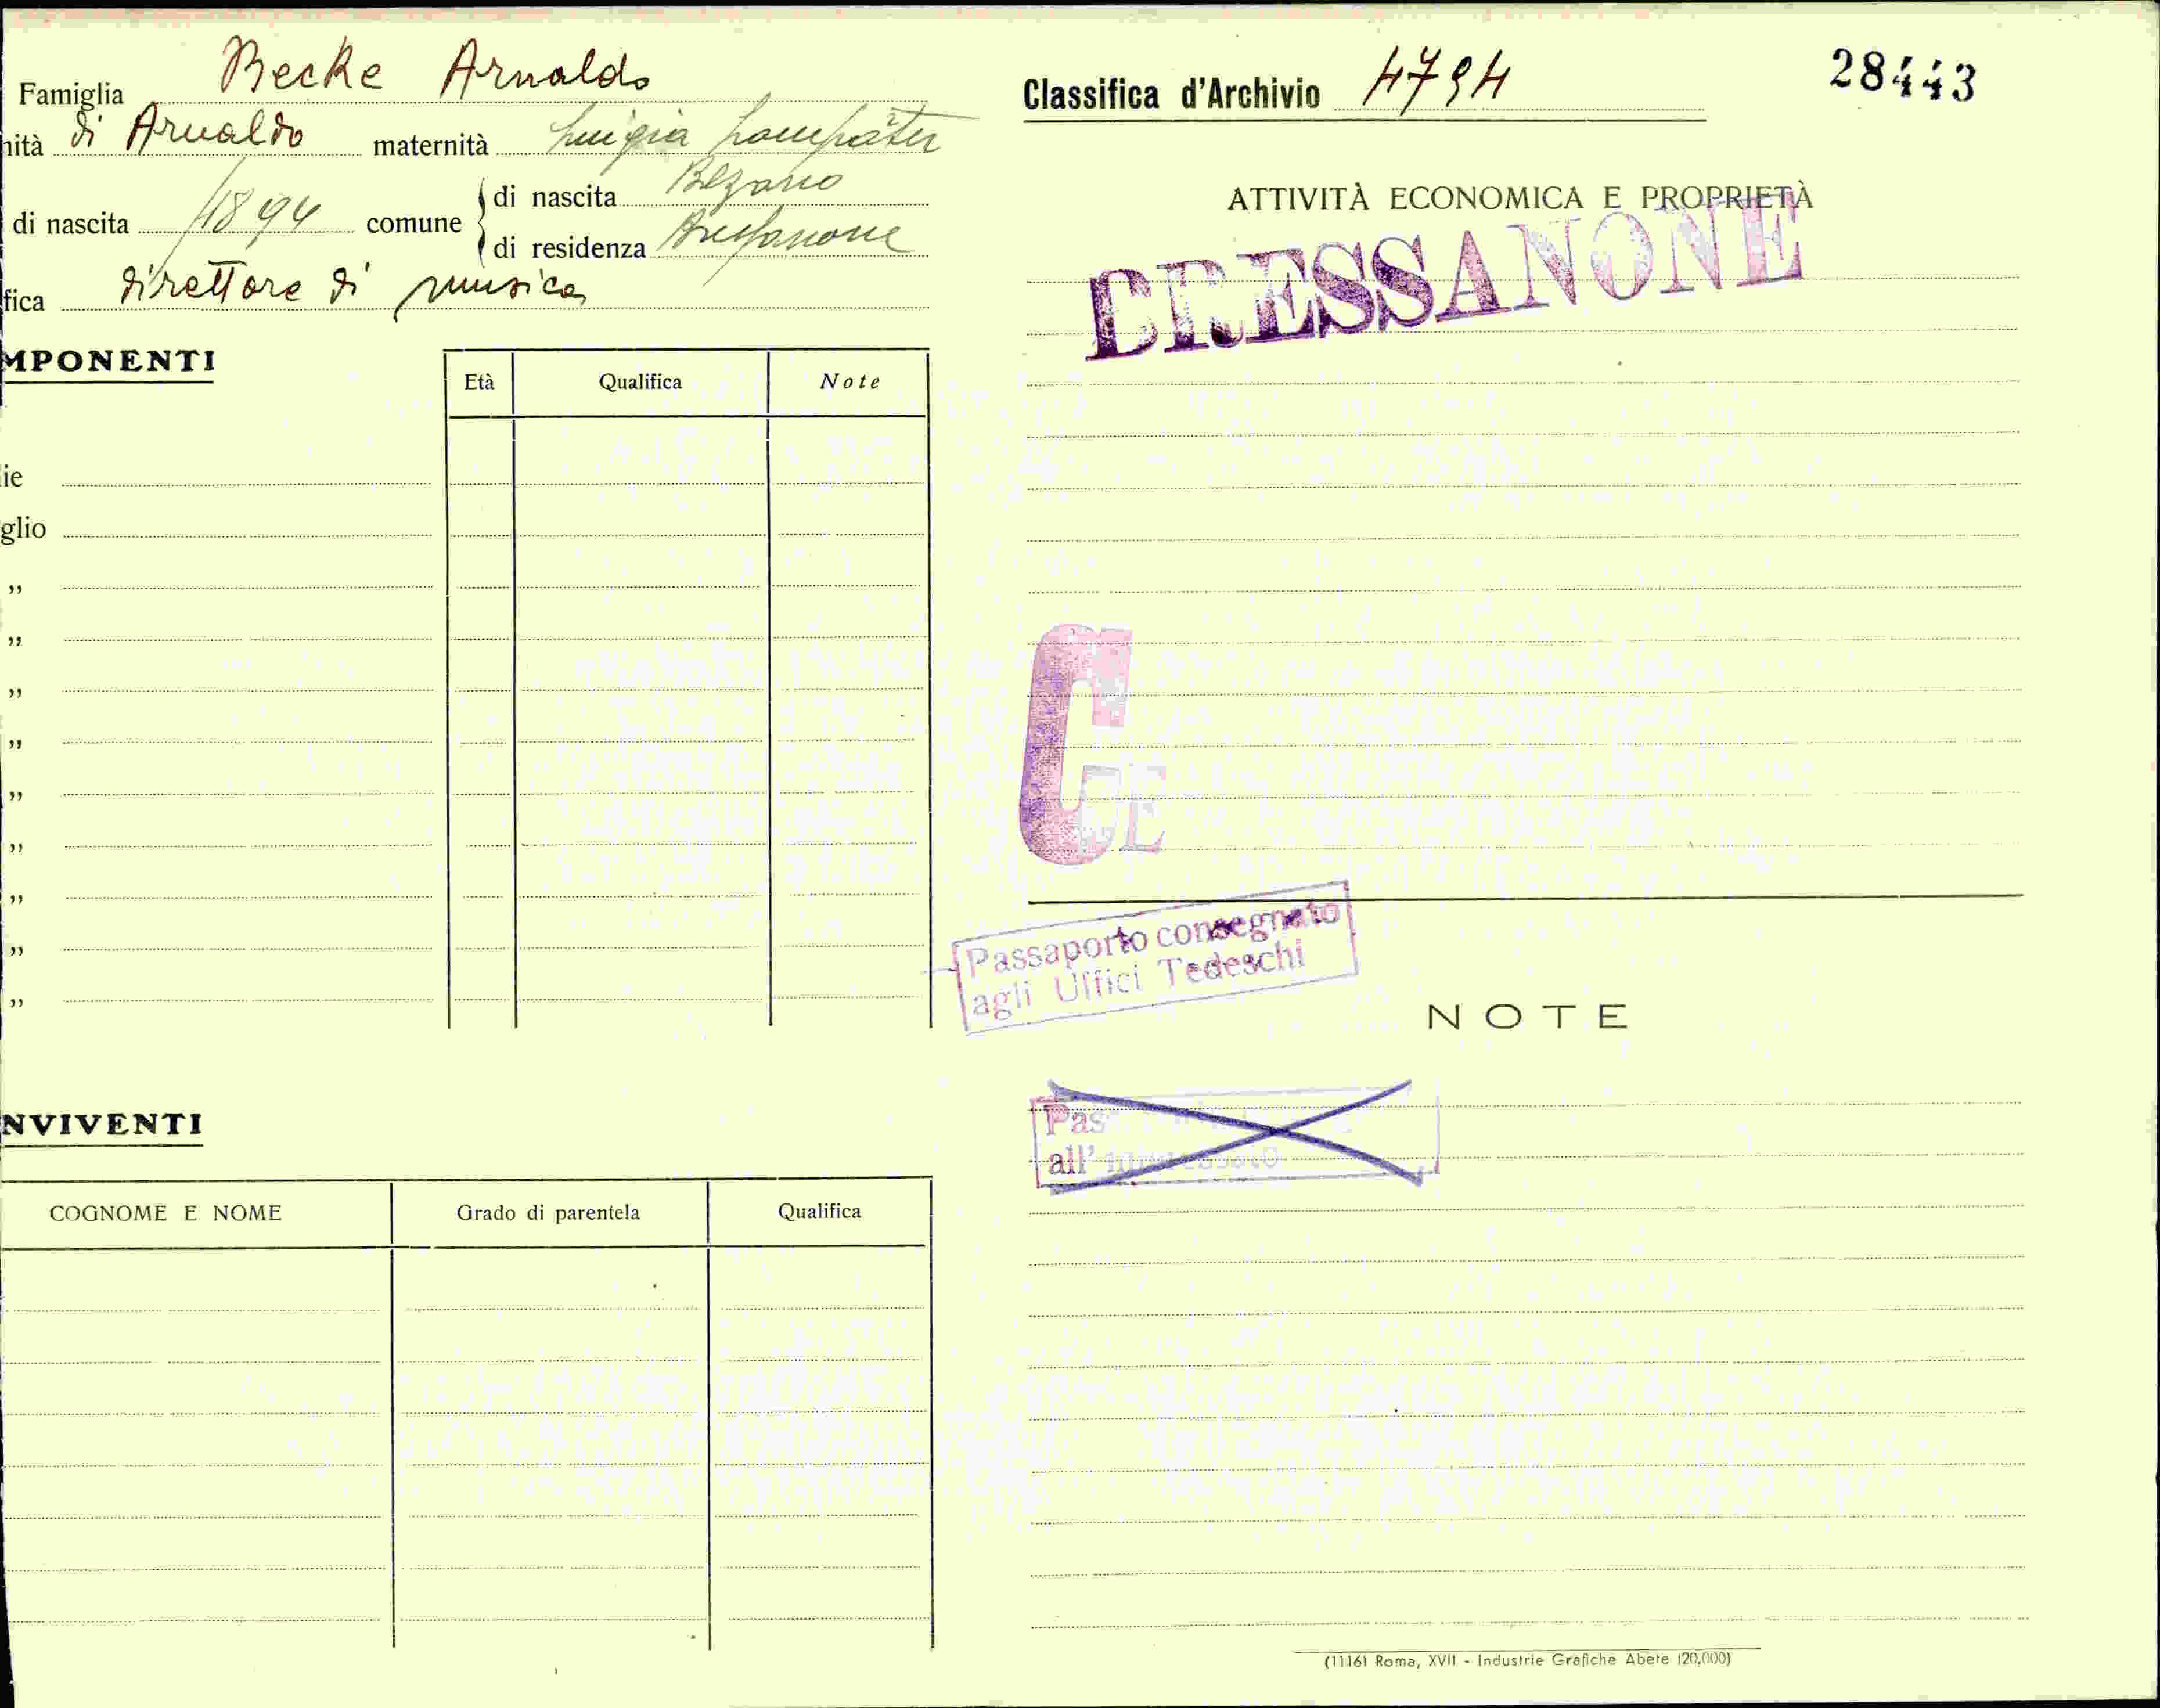 Famiglia Becke Arnaldo
nità di Arnaldo maternità Luigia
di nascita 1894 comune di nascita Bolzano
di residenza Bressanone
fica direttore di musica
MPONENTI
Età Qualifica Note
ie
glio
„
„
„
„
„
„
„
„
„
NVIVENTI
COGNOME E NOME Grado di parentela Qualifica
Classifica d'Archivio 4794
28443
ATTIVITÀ ECONOMICA E PROPRIETÀ
BRESSANONE
C
E
Passaporto consegnato
agli Uffici Tedeschi
NOTE
Pas
all'
(1116) Roma, XVII - Industrie Grafiche Abete (20,000)